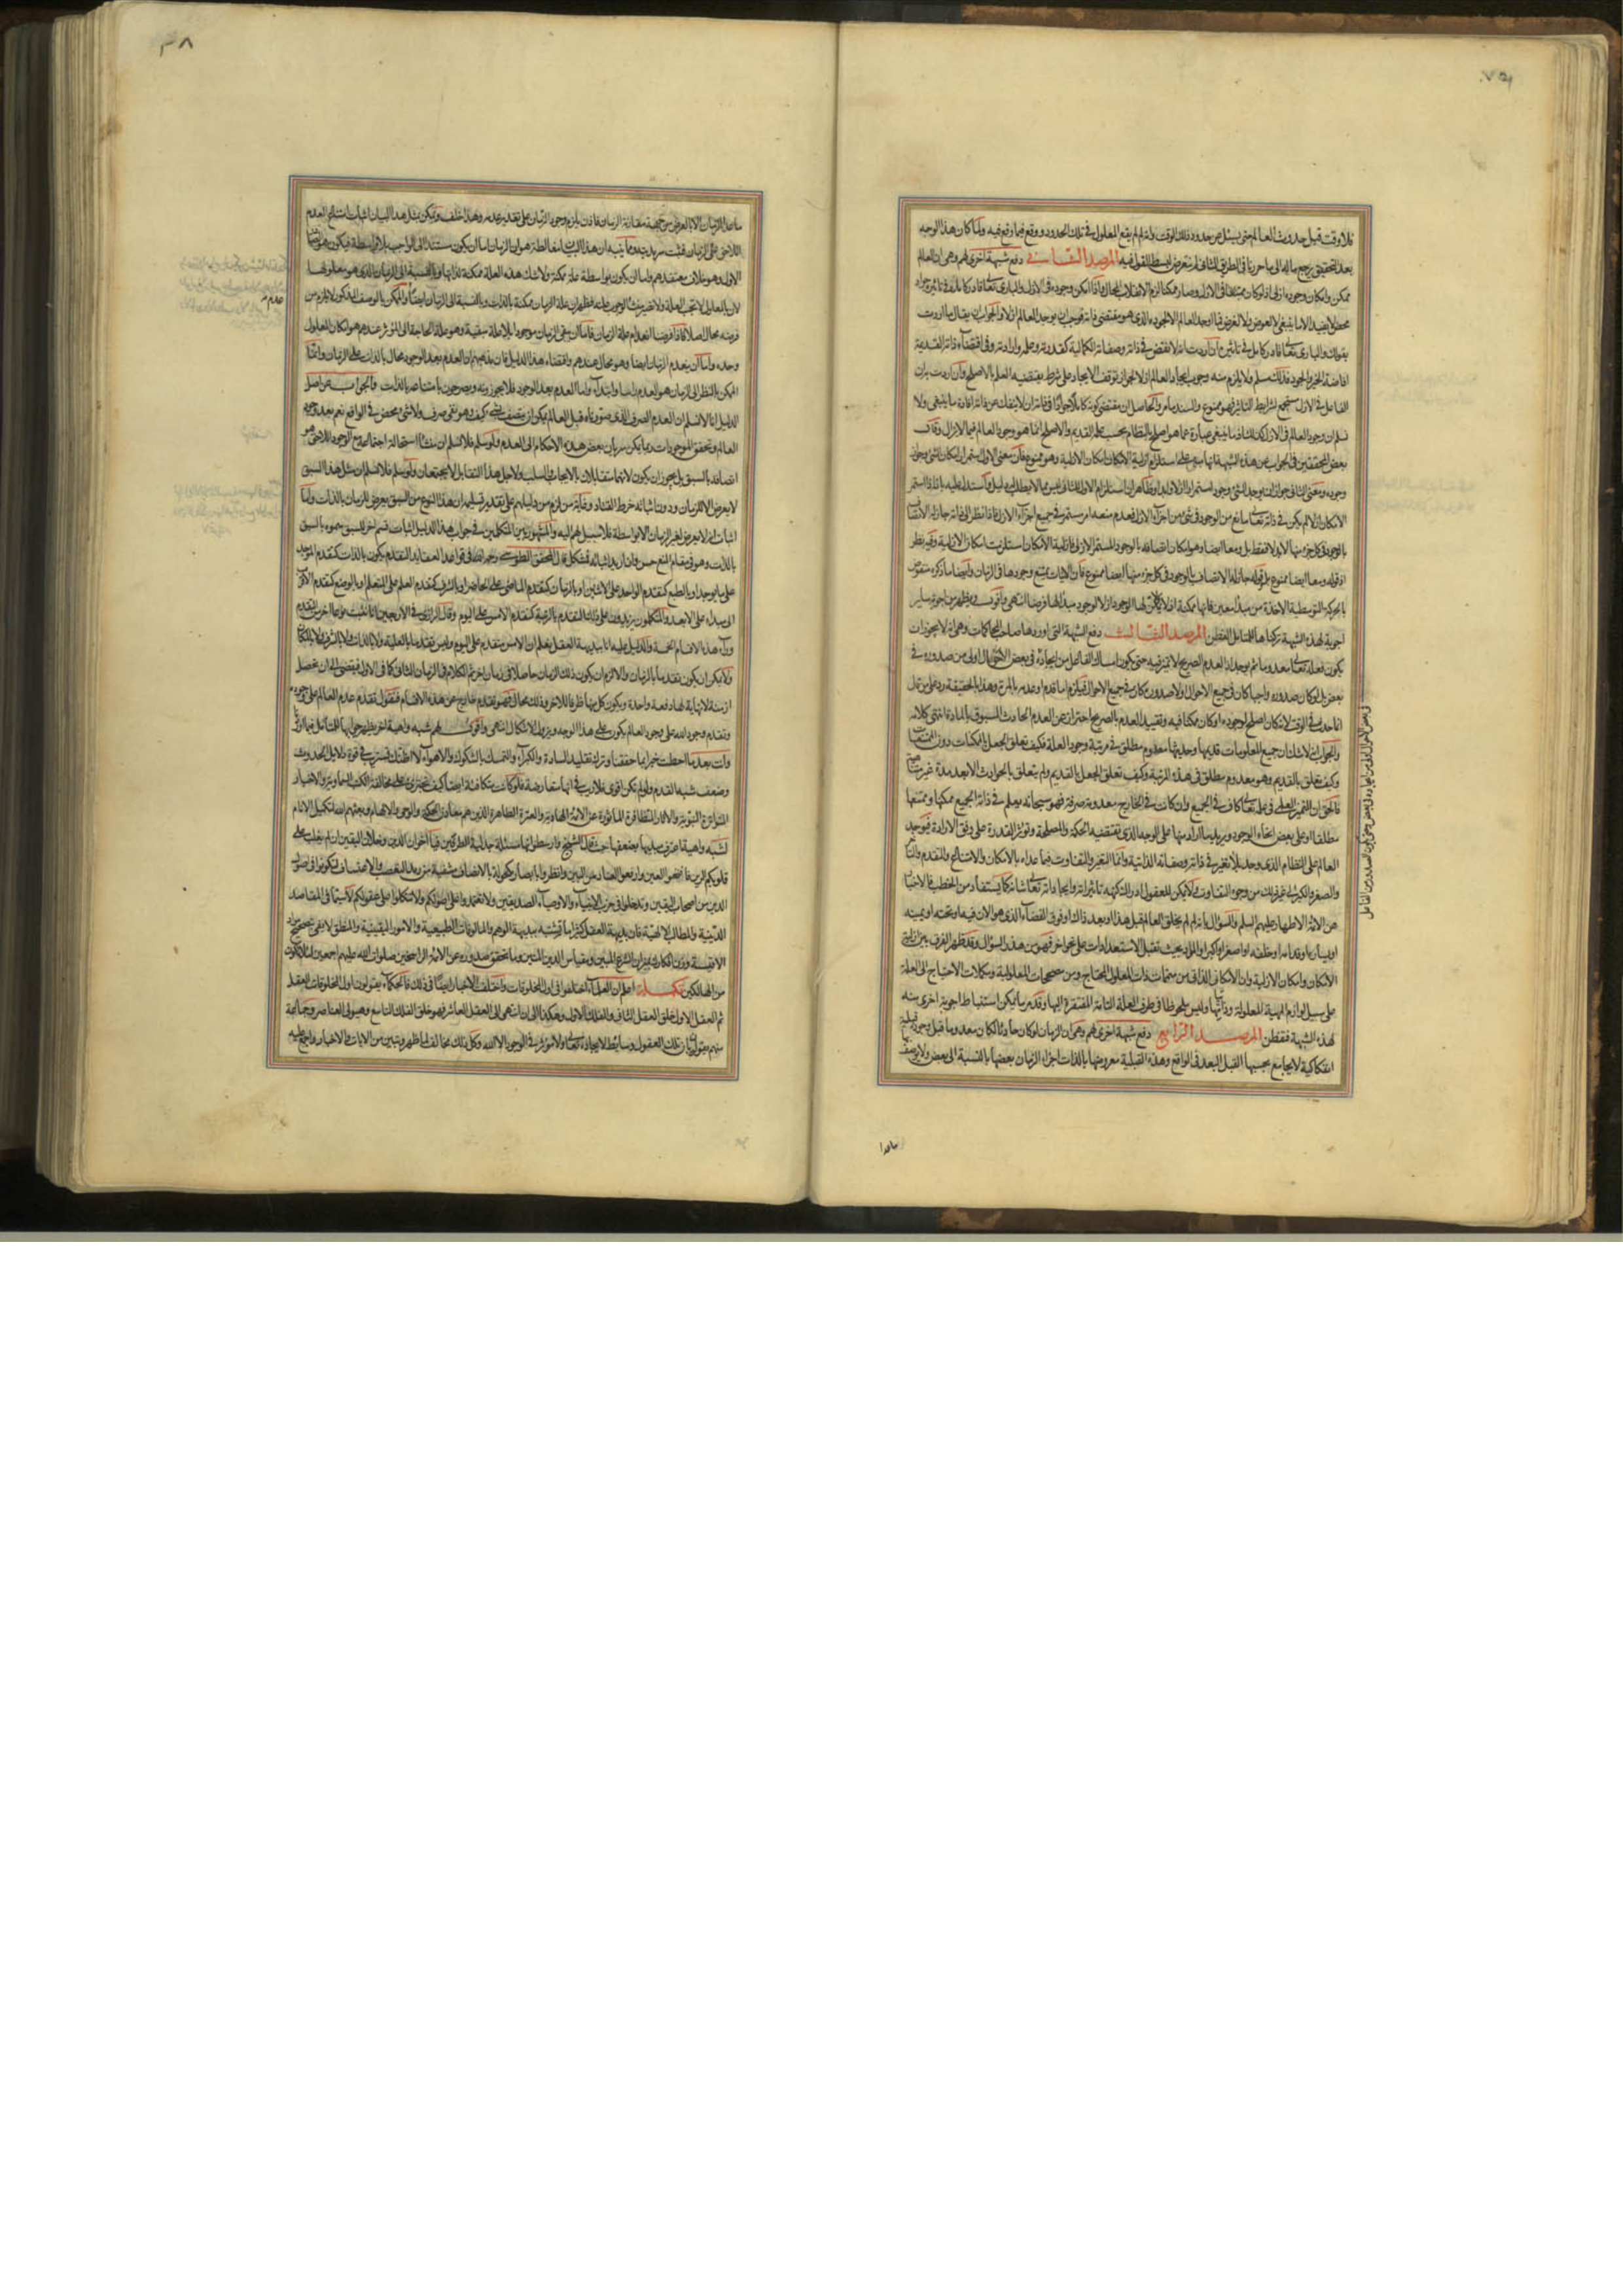 فلا وقت قبل حدوث العالم حتى يسئل عن حدود ذلك الوقت وانه لم لم يقع المعلول في تلك الحدود ووقع فيما وقع فيه ولما كان هذا الوجه
بعد التحقيق يرجع مآله الى ما حررنا في الطريق الثاني لم نتعرض لبسط القول فيه المرصد الثاني في دفع شبهة اخرى لهم وهى ان العالم
ممكن وامكان وجوده ازلى اذ لو كان ممتنعا في الازل وصار ممكنا لزم الانقلاب المحال واذا امكن وجوده في الازل والبارى تعالى قادر كامل في تاثيره جواد
محض لا يفيد الا ما ينبغى لا لعوض ولا لغرض فما اوجد العالم الا لجوده الذى هو مقتضى ذاته فوجب ان يوجد العالم ازلا والجواب ان يقال ما اردت
بقولك والبارى تعالى قادر كامل في تاثيره ان اردت انه لا نقص في ذاته وصفاته الكمالية كقدرته وعلمه وارادته وفي اقتضاء ذاته القديمة
افاضة الخير والجود فذلك مسلم ولا يلزم منه وجوب ايجاد العالم ازلا لجواز توقف الايجاد على شرط يقتضيه العلم بالاصلح وان اردت به ان
الفاعل في الازل مستجمع لشرايط التاثير فهو ممنوع والسند ما مر والحاصل ان مقتضى كونه كاملا جوادا في ذاته ان لا ينفك عن ذاته افادة ما ينبغى ولا
نسلم ان وجود العالم في الازل كذلك فما ينبغى عبارة عما هو اصلح بالنظام بحسب علمه القديم والاصلح انما هو وجود العالم فيما لا يزال وقال
بعض المحققين في الجواب عن هذه الشبهة انها مبنية على استلزام ازلية الامكان امكان الازلية وهو ممنوع فان معنى الاول استمرار امكان الشئ وجواز
وجوده ومعنى الثانى جواز ان يوجد الشئ وجودا مستمرا ازلا وابدا وظاهر ان استلزام الاول للثانى ليس مما لا يطلب له دليل واستدل عليه بانه اذا استمر
الامكان ازلا لم يكن في ذاته تعالى مانع من الوجود في شئ من اجزاء الازل فعدم منعه امر مستمر في جميع اجزاء الازل فاذا نظر الى ذاته جاز له الاتصاف
بالوجود في كل جزء منها لا بدلا فقط بل ومعا ايضا وهو امكان اتصافه بالوجود المستمر الازلى فازلية الامكان استلزمت امكان الازلية وفيه نظر
اذ قوله ومعا ايضا ممنوع بل قوله جاز له الاتصاف بالوجود في كل جزء منها ايضا ممنوع فان الآنيات يمتنع وجودها في الزمان وايضا ما ذكره منقوض
بالحركة التوسطية الآخذة من مبدأ معين فانها ممكنة ازلا ولا يمكن لها الوجود ازلا لوجود مبدأ لها فرضا انتهى واقول ويظهر من اجوبة ساير
اجوبة لهذه الشبهة تركناها للمتامل الفطن المرصد الثالث دفع الشبهة التى اوردها صاحب المحاكمات وهى انه لا يجوز ان
يكون فعله تعالى معدوما ثم يوجد اذ العدم الصريح لا تميز فيه حتى يكون امساك الفاعل من ايجاده في بعض الاحوال اولى من صدوره في
بعض بل لو كان صدوره واجبا كان في جميع الاحوال او لا صدوره كان في جميع الاحوال فيلزم اما قدم او عدمه بالمرة وهذا بالحقيقة رد على من قال
انما حدث في الوقت لانه كان اصلح لوجوده او كان ممكنا فيه وتقييد العدم بالصريح احتراز عن العدم الحادث المسبوق بالمادة انتهى كلامه
والجواب انه لا شك ان جميع المعلومات قديمها وحديثها معدوم مطلق في مرتبة وجود العلة فكيف تعلق الجعل بالممكنات دون الممتنعات
وكيف تعلق بالقديم وهو معدوم مطلق في هذه المرتبة وكيف تعلق الجعل بالقديم ولم يتعلق بالحوادث الا بعد مدة غير متناهية
فالحق ان التميز العلمى في علمه تعالى كاف في الجميع وان كانت في الخارج معدومة صرفة فهو سبحانه يعلم في ذاته الجميع ممكنها وممتنعها
مطلقا او على بعض انحاء الوجود ويريد ما اراد منها على الوجه الذى تقتضيه الحكمة والمصلحة وتؤثر القدرة على وفق الارادة فيوجد
العالم على النظام الذى وجد بلا تغير في ذاته وصفاته الذاتية وانما التغير والتفاوت فيما عداه بالامكان والامتناع والتقدم والتاخر
والصغر والكبر الى غير ذلك من وجوه التفاوت ولا يمكن للعقول ادراك كنه تاثيراته وايجاداته تعالى شانه كما يستفاد من الخطب والاخبار
عن الائمة الاطهار عليهم السلم والسؤال بانه لم لم يخلق العالم قبل هذا او بعد ذاك او فوق الفضاء الذى هو الآن فيه او تحته او يمينه
او يساره او قدامه او خلفه او اصغر او اكبر او المواد بحيث تقبل الاستعدادات على نحو اخر فهو من هذا السؤال وقد ظهر الفرق بين ازلية
الامكان وامكان الازلية وان الامكان الذاتى من متممات ذات المعلول المحتاج ومن مصححات المعلولية ومكملات الاحتياج الى العلة
على سبيل لوازم المهية المعلولة وذاتياتها وليس ملحوظا في طرف العلة التامة المفتقرة اليها وقد مر ما يمكن استنباط اجوبة اخرى منه
لهذه الشبهة فتفطن المرصد الرابع دفع شبهة اخرى لهم وهى ان الزمان لو كان حادثا لكان معدوما قبل وجوده قبلية
انفكاكية لا يجامع بحسبها القبل البعد في الواقع وهذه القبلية معروضها بالذات اجزاء الزمان بعضها بالنسبة الى بعض ولا يوصف
ما عدا
ما عدا الزمان الا بالعرض من جهة مقارنة الزمان فاذن يلزم وجود الزمان على تقدير عدمه وهذا خلف ويمكن بمثل هذا البيان اثبات امتناع العدم
اللاحق على الزمان فثبت سرمديته ومما ينبه ان هذا البيان مغالطة هو ان الزمان اما ان يكون مستندا الى الواجب بلا واسطة فيكون هو الصادر
الاول وهو خلاف معتقدهم واما ان يكون بواسطة علة ممكنة ولا شك هذه العلة ممكنة لذاتها وبالنسبة الى الزمان الذى هو معلولها
لان المعلول لا تجب العلة ولا تصير منشا لوجوب علته فظهر ان علة الزمان ممكنة بالذات وبالنسبة الى الزمان ايضا والممكن بالوصف المذكور لا يلزم من
فرضه محال اصلا فاذا فرضنا انعدام علة الزمان فاما ان يبقى الزمان موجودا بلا علة مبقية وهو علة الحاجة الى المؤثر عندهم هو امكان المعلول
وحده واما ان ينعدم الزمان ايضا وهو محال عندهم واقتضاء هذا الدليل فان مذهبهم ان العدم بعد الوجود محال بالذات على الزمان وانما
الممكن بالنظر الى الزمان هو العدم راسا وابتداء واما العدم بعد الوجود فلا يجوزونه ويصرحون بامتناعه بالذات والجواب عن اصل
الدليل انا لا نسلم ان العدم الصرف الذى صورناه قبل العالم يمكن ان يتصف بشئ كيف وهو نفى صرف ولا شئ محض في الواقع نعم بعد وجود
العالم وتحقق الموجودات ربما يمكن سريان بعض هذه الاحكام الى العدم ولو سلم فلا نسلم ان منشا استحالة اجتماعه مع الوجود اللاحق هو
اتصافه بالسبق بل يجوز ان يكون لانهما متقابلان بالايجاب والسلب ولاجل هذا التقابل لا يجتمعان ولو سلم فلا نسلم ان مثل هذا السبق
لا يعرض الا للزمان ودون اثباته خرط القتاد وغاية ما لزم من دليلهم على تقدير تسليمه ان هذا النوع من السبق يعرض للزمان بالذات واما
اثبات انه لا يعرض لغير الزمان الا بواسطة فلا سبيل لهم اليه والمشهور بين المتكلمين في جواب هذا الدليل اثبات قسم اخر للسبق سموه بالسبق
بالذات وهو في مقام المنع حسن وان اريد اثباته فمشكل قال المحقق الطوسى رحمه الله في قواعد العقايد التقدم يكون بالذات كتقدم الموجد
على ما يوجد او بالطبع كتقدم الواحد على الاثنين او بالزمان كتقدم الماضى على الحاضر او بالشرف كتقدم المعلم على المتعلم او بالوضع كتقدم الاقرب
الى مبداء على الابعد والمتكلمون يزيدون على ذلك التقدم بالرتبة كتقدم الامس على اليوم وقال الرازى في الاربعين انا نثبت نوعا اخر من التقدم
وراء هذه الاقسام الخمسة والدليل عليه انا ببديهة العقل نعلم ان الامس متقدم على اليوم وليس تقدما بالعلية ولا بالذات ولا بالشرف ولا بالمكان
ولا يمكن ان يكون تقدما بالزمان والا لزم ان يكون ذلك الزمان حاصلا في زمان اخر ثم الكلام في الزمان الثانى كما في الاول فيفضى الى ان تحصل
ازمنة لا نهاية لها دفعة واحدة ويكون كل منها ظرفا للاخر وذلك محال فهو تقدم خارج عن هذه الاقسام فنقول تقدم عدم العالم على وجوده
وتقدم وجود الله على وجود العالم يكون على هذا الوجه ويزول الاشكال انتهى واقول لهم شبه واهية اخر يظهر جوابها للمتامل فيما اوردنا
وانت بعد ما احطت خبرا بما حققنا وتركت تقليد السادة والكبراء والتمسك بالشكوك والاهواء لا اظنك تستريب في قوة دلايل الحدوث
وضعف شبه القدم ولو لم تكن اقوى فلا ريب في انها متعارضة فلو كانت متكافئة ايضا كيف تجترى على مخالفة الكتب السماوية والاخبار
المتواترة النبوية والآثار المتظافرة الماثورة عن الائمة الهادية والعترة الطاهرة الذين هم معادن الحكمة والوحى والالهام وبعثهم الله لتكميل الانام
لشبه واهية اعترف مبديها بضعفها حيث قال الشيخ وارسطو انها مسئلة جدلية الطرفين فيا اخوان الدين وخلان اليقين ان لم يغلب على
قلوبكم الرين فافتحوا العين وارفعوا العناد من البين وانظروا بابصار مكحولة بالانصاف مشفية من رمد التعصب والاعتساف فتكونوا في اصول
الدين من اصحاب اليقين وتدخلوا في حزب الانبياء والاوصياء والصديقين ولا تعتمدوا على اصولكم ولا تتكلوا على عقولكم لا سيما في المقاصد
الدينية والمطالب الالهية فان بديهة العقل كثيرا ما تشتبه ببديهة الوهم والمالوفات الطبيعية بالامور اليقينية والمنطق لا يفى بتصحيح مواد
الاقيسة وزن افكارك بميزان الشرع المبين ومقياس الدين المتين وما تحقق صدوره عن الائمة الراسخين صلوات الله عليهم اجمعين لئلا تكون
من الهالكين تكملة اعلم ان العلماء اختلفوا في اول المخلوقات واختلف الاخبار ايضا في ذلك فالحكماء يقولون اول المخلوقات العقل
ثم العقل الاول خلق العقل الثانى والفلك الاول وهكذا الى ان انتهى الى العقل العاشر فهو خلق الفلك التاسع وهيولى العناصر وجماعة
منهم يقولون بان تلك العقول وسايط لايجاده تعالى ولا مؤثر في الوجود الا الله وكل ذلك مخالف لما ظهر وتبين من الآيات والاخبار واجمع عليه